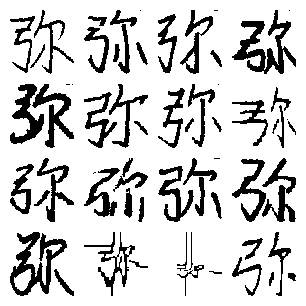 弥弥弥弥
弥弥弥弥
弥弥弥弥
弥弥弥弥